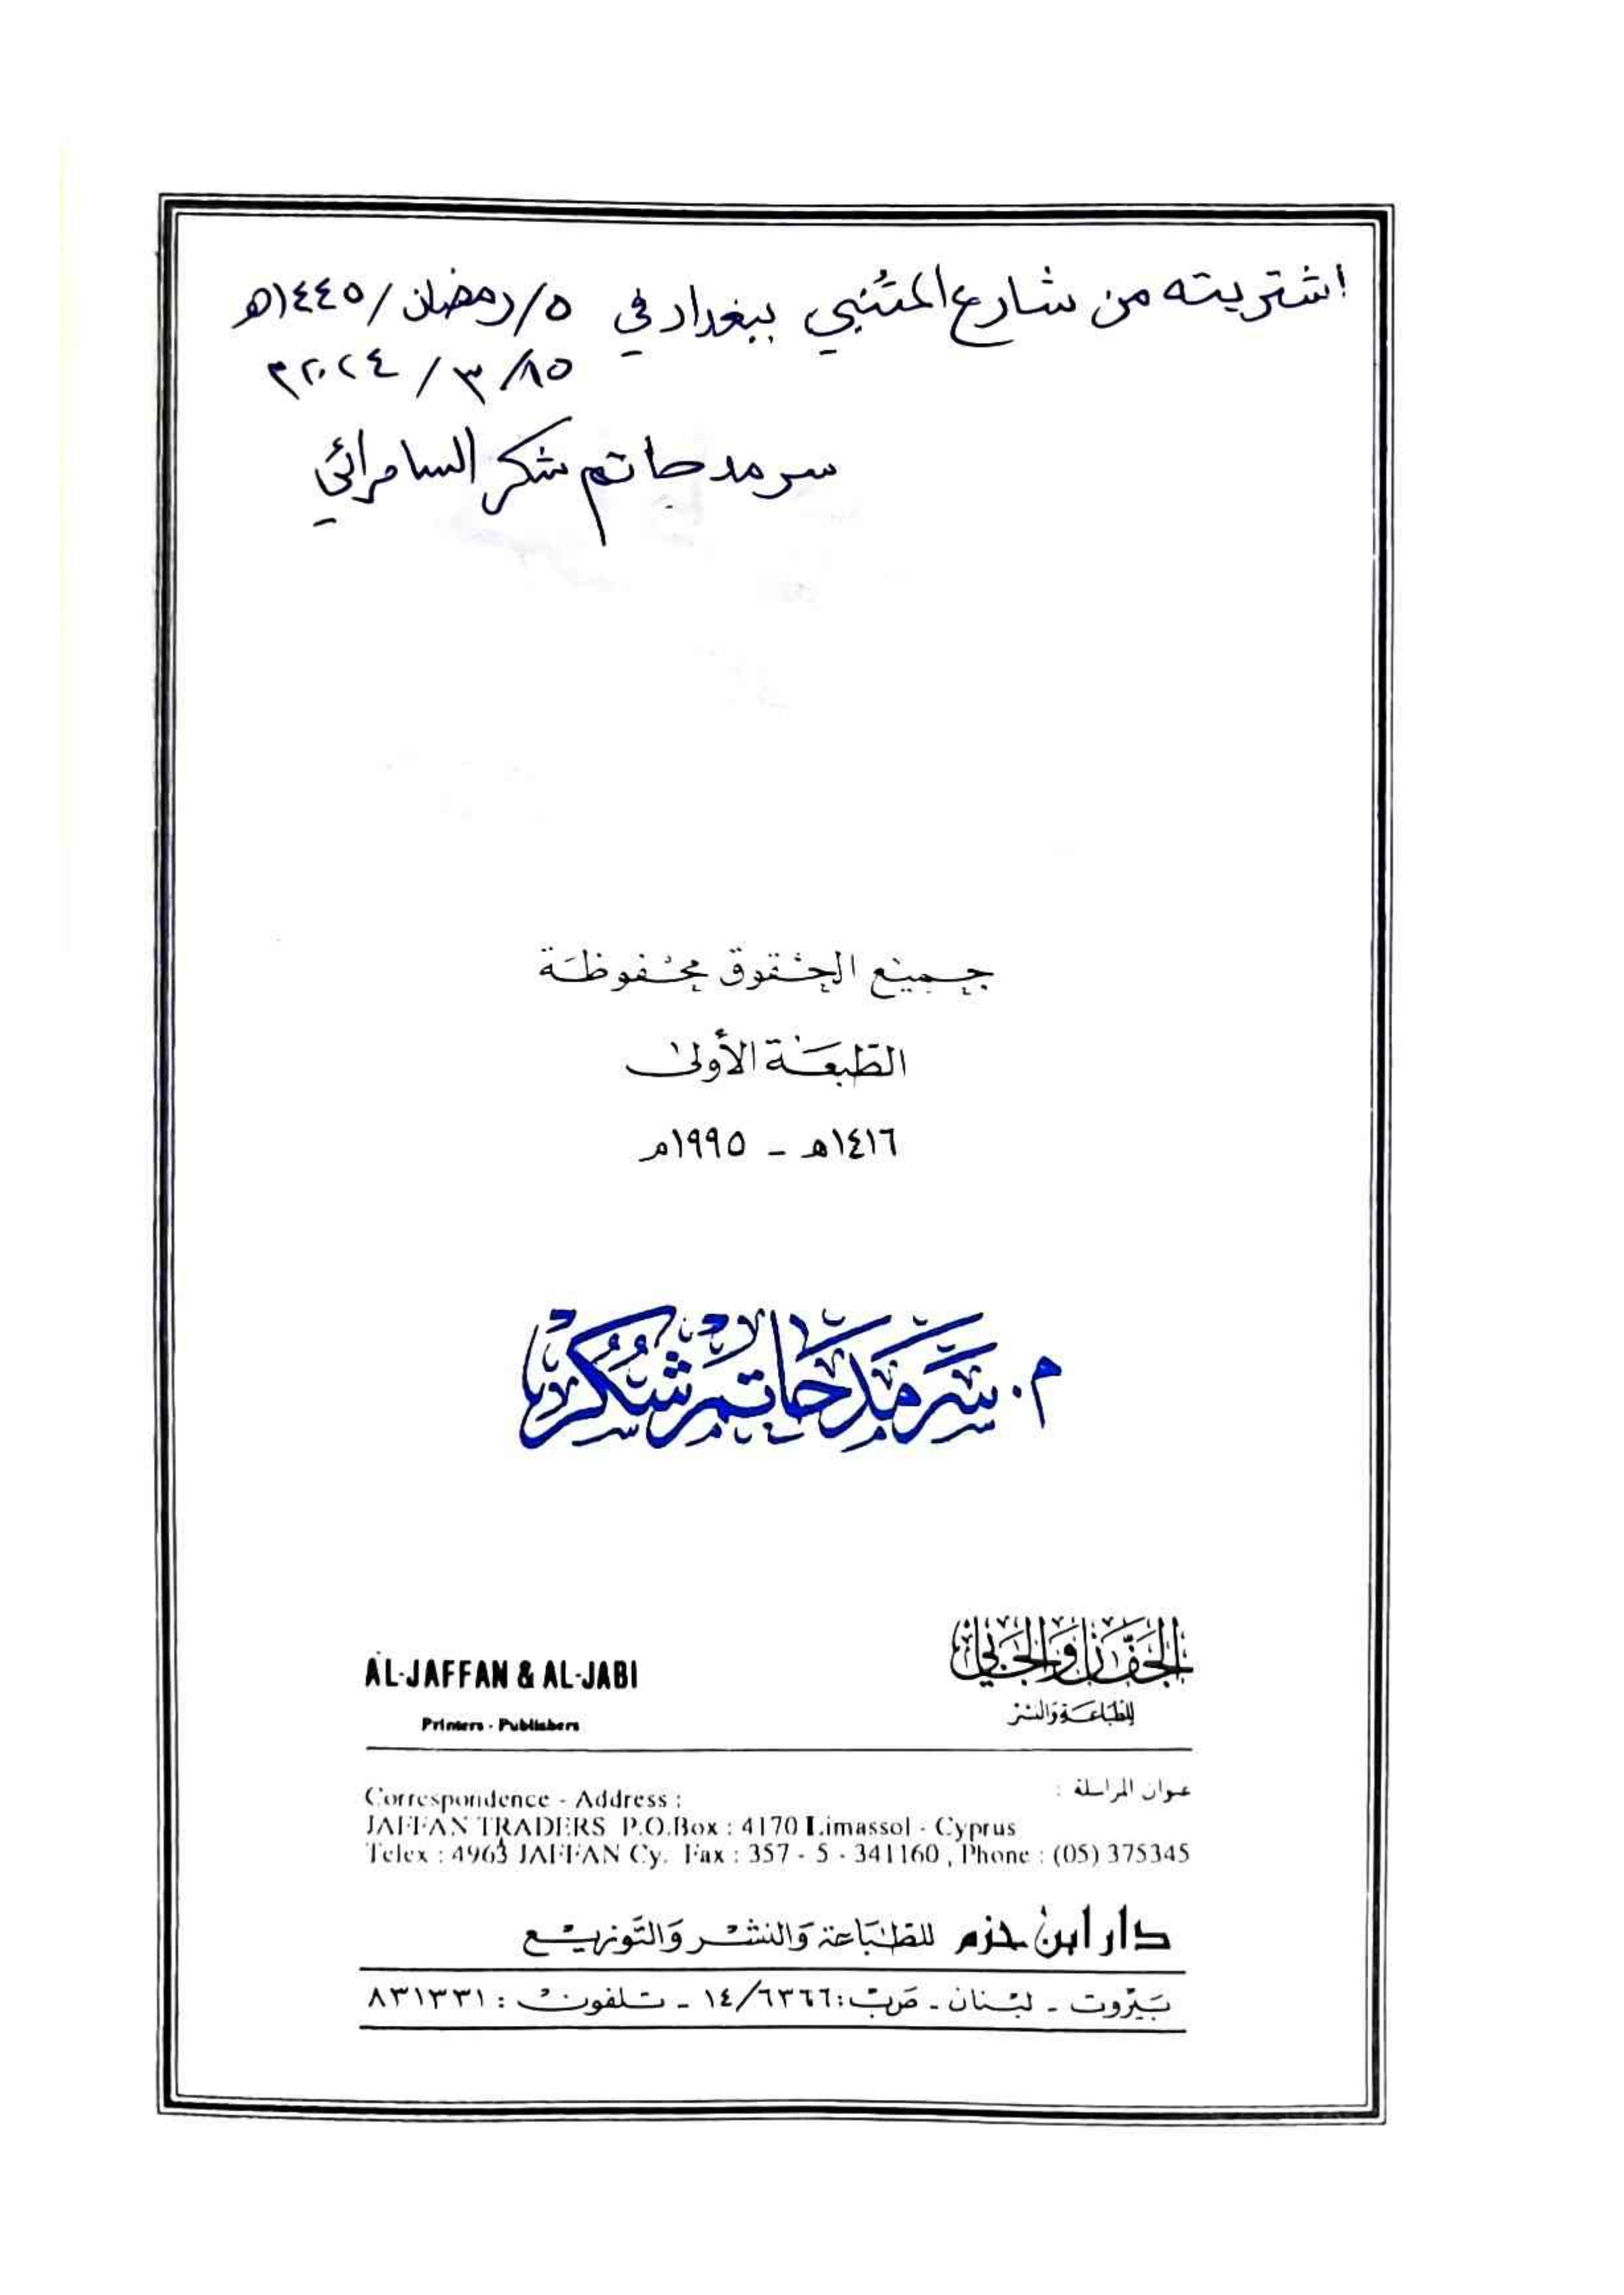 اشتريته من شارع المتنبي ببغداد في ٥/رمضان/١٤٤٥هـ
١٥/٣/٢٠٢٤م
سرمد حاتم شكر السامرائي
جميع الحقوق محفوظة
الطبعة الأولى
١٤١٦هـ - ١٩٩٥م
م. سرمد حاتم شكر
الجفان والجابي
للطباعة والنشر
AL-JAFFAN & AL-JABI
Printers - Publishers
عنوان المراسلة :
Correspondence - Address :
JAFFAN TRADERS P.O.Box : 4170 Limassol - Cyprus
Telex : 4963 JAFFAN Cy. Fax : 357 - 5 - 341160 , Phone : (05) 375345
دار ابن حزم للطباعة والنشر والتوزيع
بيروت - لبنان - صرب: ١٤/٦٣٦٦ - تلفون : ٨٣١٣٣١